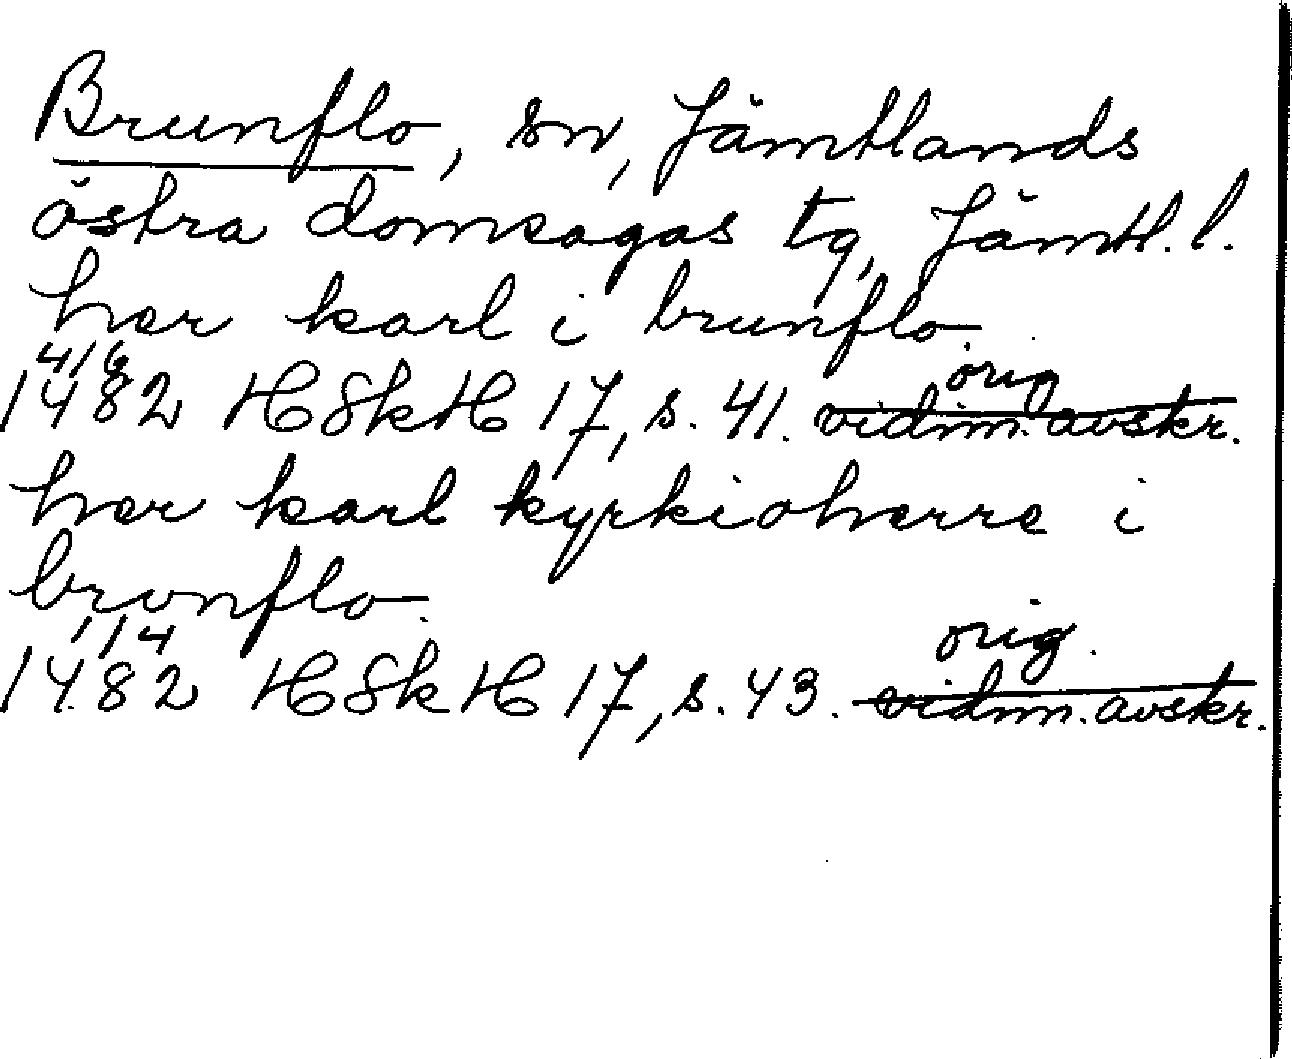 Brunflo, sn, Jämtlands
östra domsagas tg, Jämtl. l.
her karl i brunflo.
4/6 orig
1482 HSkH 17, s. 41. vidim. avskr.
her karl kyrkioherre i
bronflo.
1/4 orig.
1482 HSkH 17, s. 43. vidim. avskr.